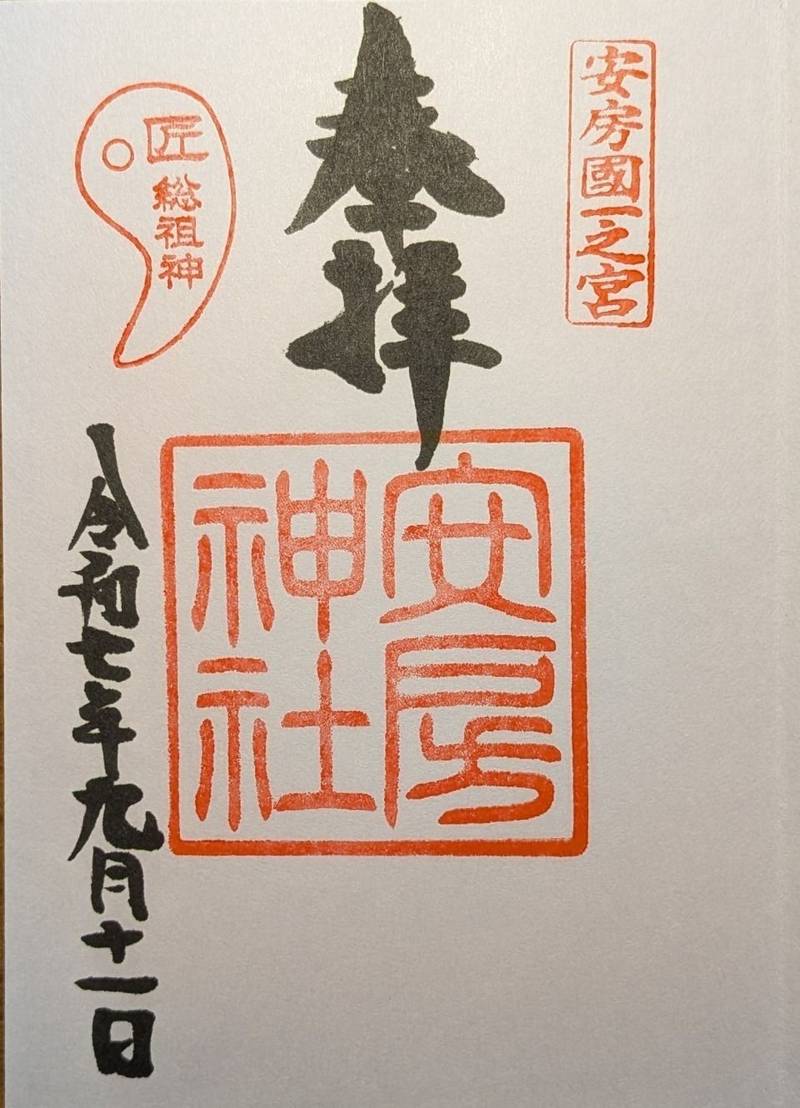 安房國一之宮
奉拝
安房
神社
匠
総祖神
令和七年九月十一日